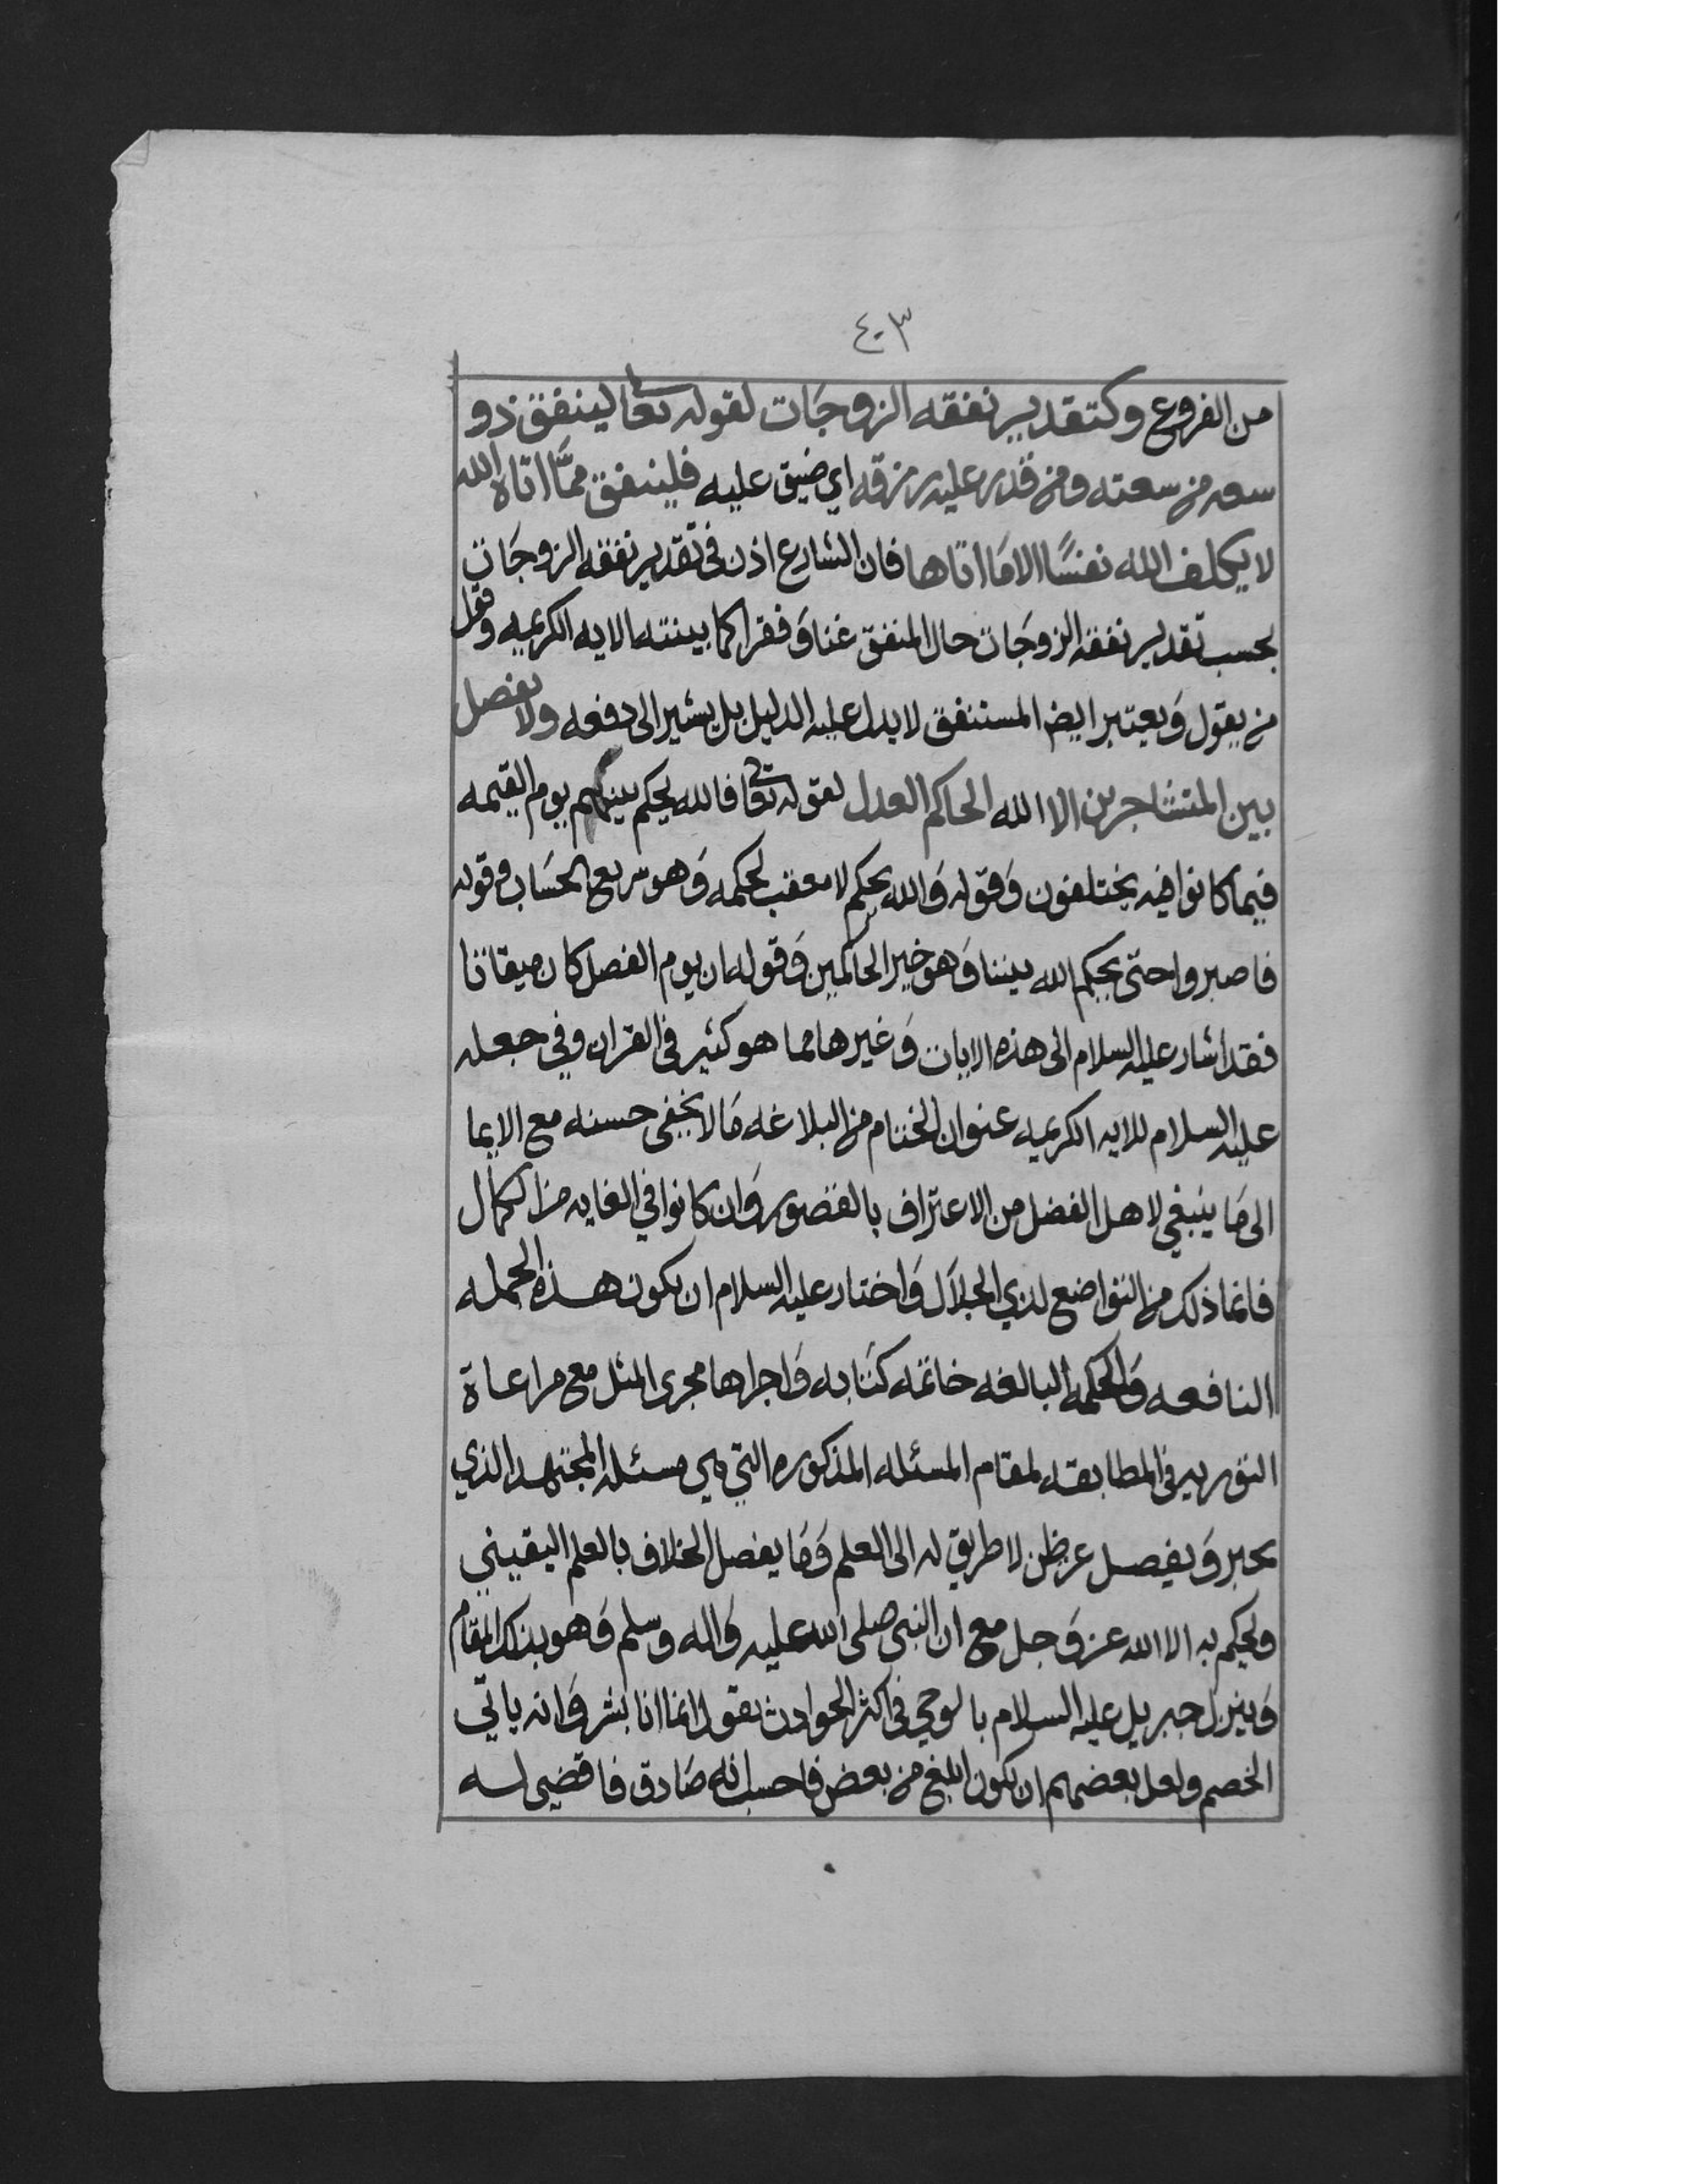 ٤٠٣
من الفروع وكتقدير نفقه الزوجات لقوله تعا لينفق ذو
سعه من سعته ومن قدر عليه رزقه اي ضيق عليه فلينفق ممّا اتاه الله
لا يكلف الله نفسًا الا مَا اتاها فان الشارع اذن في تقدير نفقه الزوجَات
بحسب تقدير نفقه الزوجَات حال المنفق غنا وَفقرا كما بينته الايه الكريمه وقول
من يقول وَيعتبر ايضا المستنفق لا يدل عليه الدليل بل يشير الى دفعه ولا يفصل
بين المتشاجرين الا الله الحاكم العدل لقوله تعا فالله يحكم بينهم يوم القيمه
فيما كانوا فيه يختلفون وَقوله وَالله يحكم لا معقب لحكمه وَهو سريع الحسَاب وقوله
فاصبروا حتى يحكم الله بيننا وَهو خير الحاكمين وَقوله ان يوم الفصل كان ميقاتا
فقد اشار عليه السلام الى هذه الايات وَغيرها مما هو كثير في القران وفي جعله
عليه السلام للايه الكريمه عنوان الختام من البلاغه مَا لا يخفى حسنه مع الايما
الى مَا ينبغي لاهل الفضل من الاعتراف بالقصور وَان كانوا في الغايه من الكمال
فانما ذلك من التواضع لذي الجلال وَاختار عليه السلام ان يكون هذه الجمله
النافعه وَالحكمه البالغه خاتمه كتابه وَاجراها مجرى المثل مع مراعاة
التوريه في المطابقه لمقام المسئله المذكوره التي هي مسئله المجتهد الذي
يخبر وَيفصل عن ظن لا طريق له الى العلم وَمَا يفصل الخلاف بالعلم اليقيني
ويحكم به الا الله عز وَجل مع ان النبي صلى الله عليه وَاله وسلم وَهو بذلك المقام
وَينزل جبريل عليه السلام بالوحي في اكثر الحوادث يقول انما انا بشر وَانه ياتي
الخصم ولعل بعضهم ان يكون ابلغ من بعض فاحسب انه صَادق فاقضي له